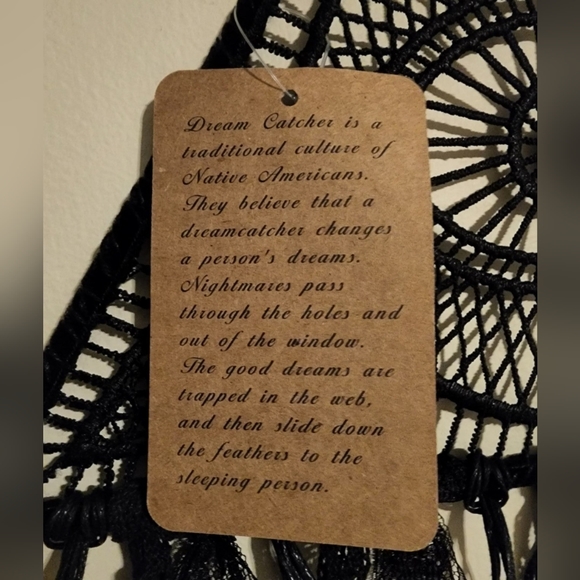 Dream Catcher is a
traditional culture of
Native Americans.
They believe that a
dreamcatcher changes
a person's dreams.
Nightmares pass
through the holes and
out of the window.
The good dreams are
trapped in the web,
and then slide down
the feathers to the
sleeping person.